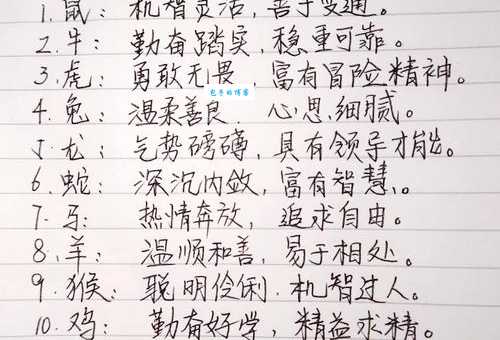 1.鼠：机智灵活，善于变通。
2.牛：勤奋踏实，稳重可靠。
3.虎：勇敢无畏，富有冒险精神。
包子的博客
4.兔：温柔善良 心思细腻。
5.龙：气势磅礴，具有领导才能。
6.蛇：深沉内敛，富有智慧。
7.马：热情奔放，追求自由。
8.羊：温顺和善，易于相处。
9.猴：聪明伶俐.机智过人。
10.鸡：勤奋好学，精益求精。